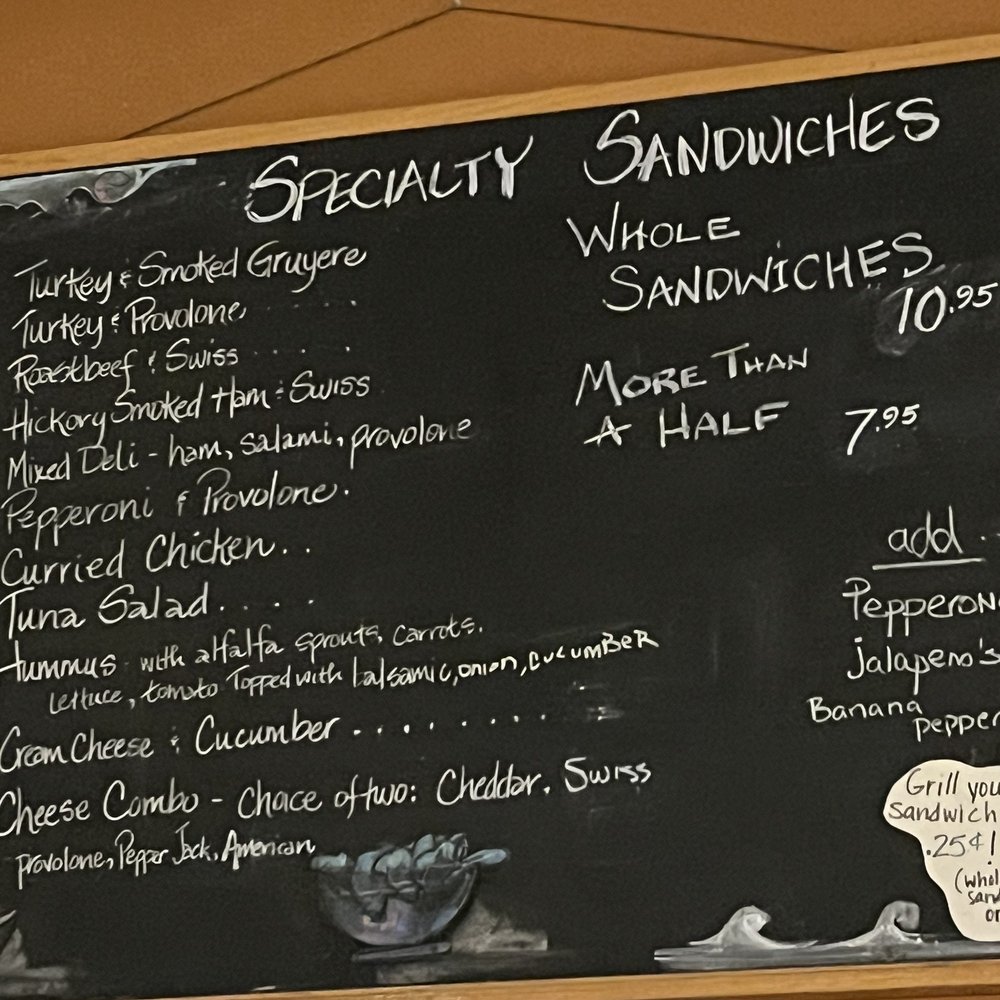 SPECIALTY SANDWICHES
Turkey & Smoked Gruyere
Turkey & Provolone
Roastbeef & Swiss . . . . .
Hickory Smoked Ham & Swiss
Mixed Deli - ham, salami, provolone
Pepperoni & Provolone.
Curried Chicken. .
Tuna Salad. . . . .
Hummus with alfalfa sprouts, carrots.
lettuce, tomato Topped with balsamic, onion, cucumBeR
Cream Cheese & Cucumber . . . . . . . . .
Cheese Combo - Choice of two: Cheddar, Swiss
provolone, Pepper Jack, American
WHOLE
SANDWICHES
10.95
MORE THAN
A HALF 7.95
add . .
Pepperoni
jalapeno's
Banana
pepper
Grill you
Sandwich
.25¢!
(whol
sand
on